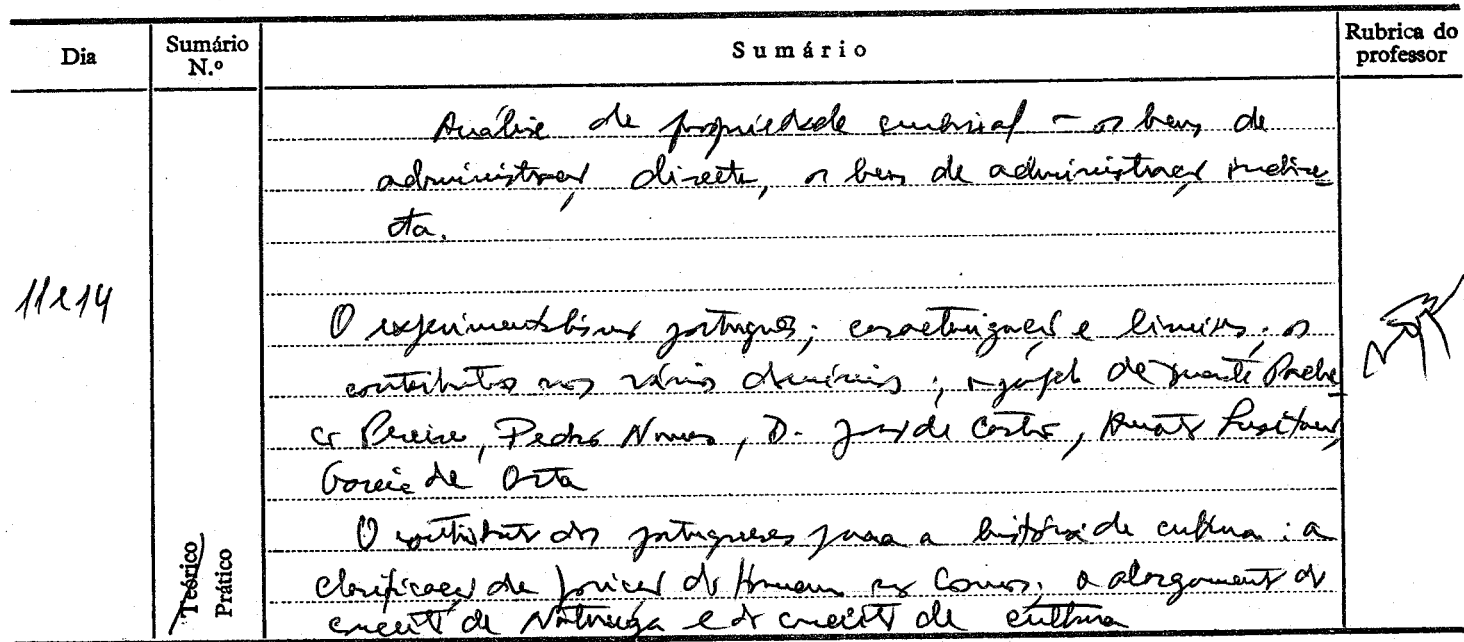 Dia
Sumário N.º
Sumário
Rubrica do professor
Análise da propriedade senhorial - os bens de
administração directa, os bens de administração indirec
ta.
11 e 14
O experimentalismo português; caracterização e limites; os
contributos nos vários domínios; o papel de Duarte Pache
co Pereira, Pedro Nunes, D. João de Castro, Amato Lusitano,
Garcia de Orta
O contributo dos portugueses para a história da cultura: a
clarificação da posição do Homem no Cosmos; o alargamento do
conceito de Natureza e do conceito de cultura
Teórico
Prático